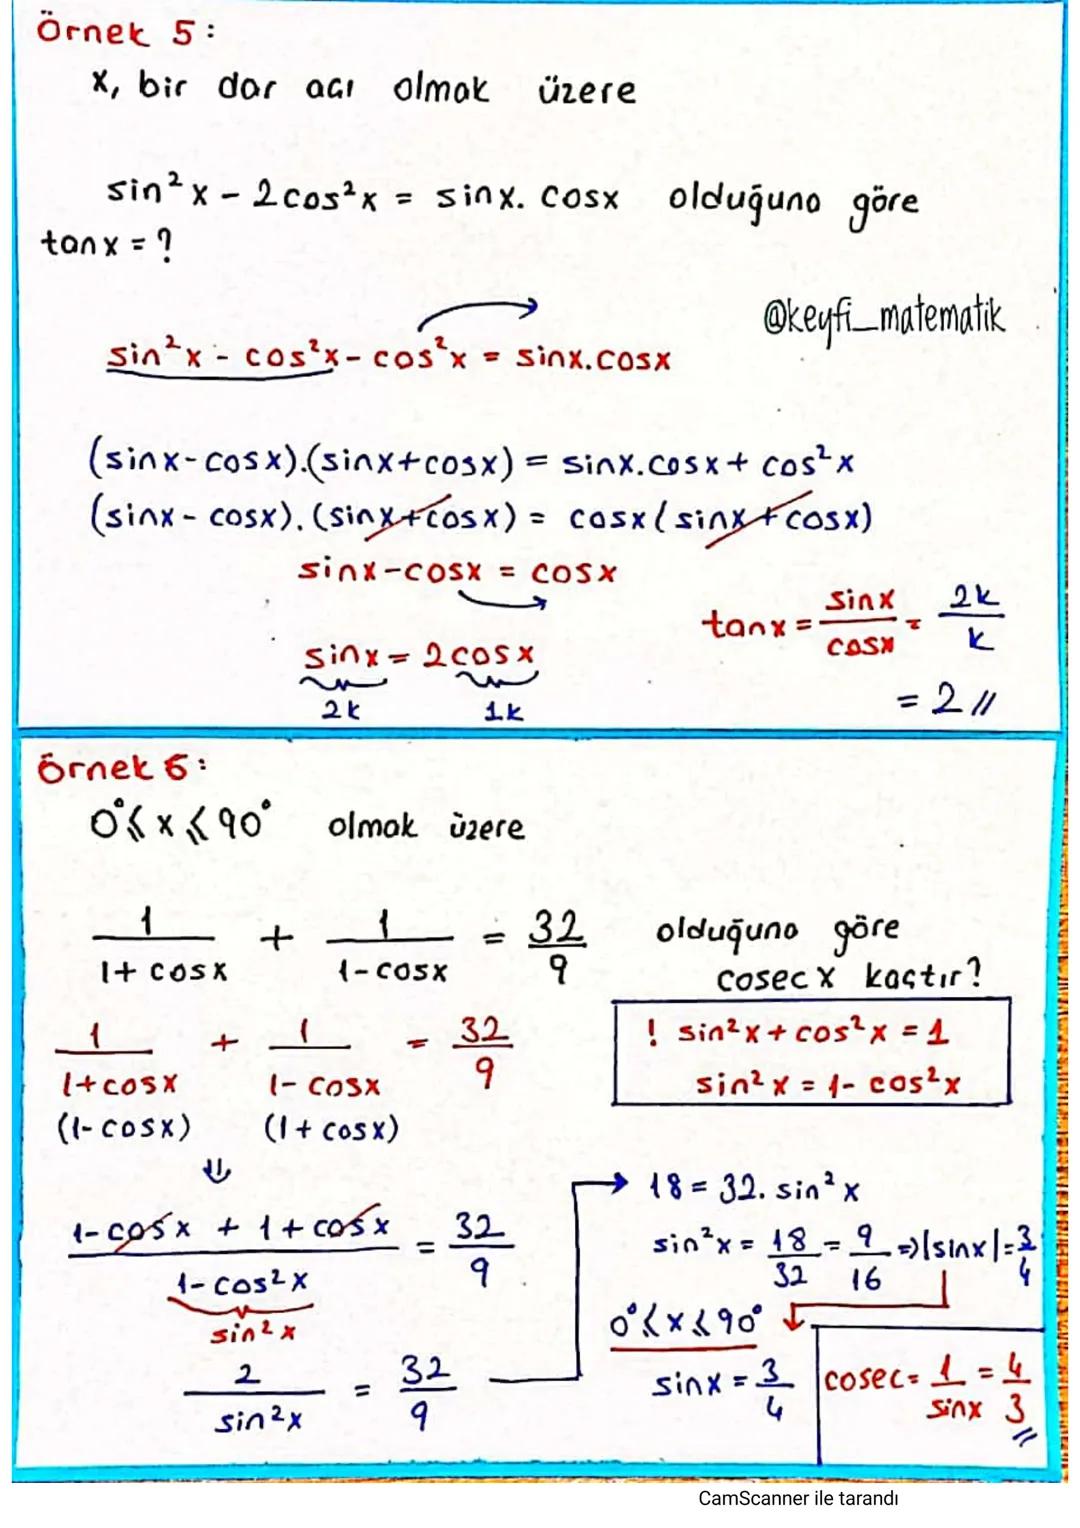 Örnek 5:
x, bir dar açı olmak üzere
sin²x - 2cos²x = sinx. cosx olduğuna göre
tanx = ?
@keyfi_matematik
sin²x - cos²x - cos²x = sinx.cosx
(sinx-cosx).(sinx+cosx) = sinx.cosx + cos²x
(sinx - cosx).(sinx+cosx) = cosx(sinx+cosx)
sinx-cosx = cosx
tanx = sinx/cosx = 2k/k
sinx = 2cosx
2k 1k
= 2 //
Örnek 6:
0°≤ x ≤ 90° olmak üzere
1/(1+cosx) + 1/(1-cosx) = 32/9 olduğuna göre
cosec x kaçtır?
1/(1+cosx) + 1/(1-cosx) = 32/9
(1-cosx) (1+cosx)
! sin²x + cos²x = 1
sin²x = 1- cos²x
⇓
(1-cosx + 1+cosx)/(1-cos²x) = 32/9
sin²x
2/sin²x = 32/9
→ 18 = 32. sin²x
sin²x = 18/32 = 9/16 ⇒ |sinx| = 3/4
0°≤ x ≤ 90°
sinx = 3/4
cosec = 1/sinx = 4/3 //
CamScanner ile tarandı